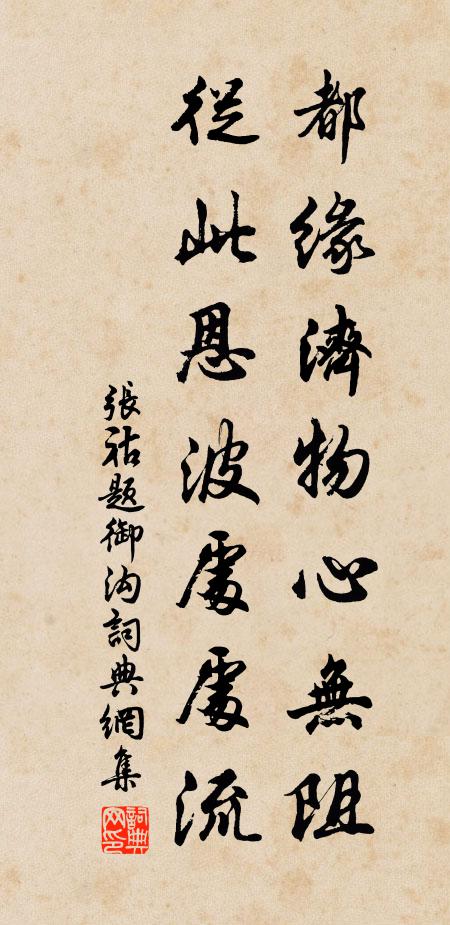 都緣濟物心無阻
從此恩波處處流
張祜題御沟詞典網集
詞典网印